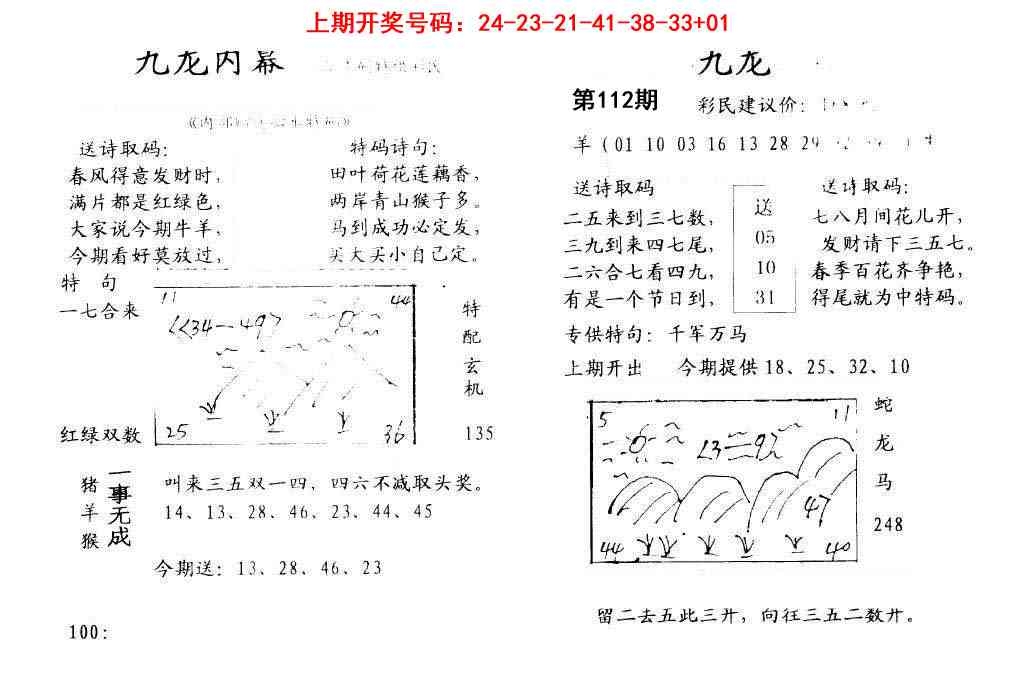 上期开奖号码：24-23-21-41-38-33+01
九龙内幕
送诗取码：
春风得意发财时，
满片都是红绿色，
大家说今期牛羊，
今期看好莫放过，
特码诗句：
田叶荷花莲藕香，
两岸青山猴子多。
马到成功必定发，
买大买小自己定。
特 句
一七合来
红绿双数
11
44
34-49
25
36
特
配
玄
机
135
猪
羊
猴
一事无成
叫来三五双一四，四六不减取头奖。
14、13、28、46、23、44、45
今期送：13、28、46、23
100：
九龙
第112期
彩民建议价：
羊（01 10 03 16 13 28 29
送诗取码
二五来到三七数，
三九到来四七尾，
二六合七看四九，
有是一个节日到，
送
05
10
31
送诗取码：
七八月间花儿开，
发财请下三五七。
春季百花齐争艳，
得尾就为中特码。
专供特句：千军万马
上期开出 今期提供18、25、32、10
5
11
47
44
40
蛇
龙
马
248
留二去五此三开，向往三五二数开。